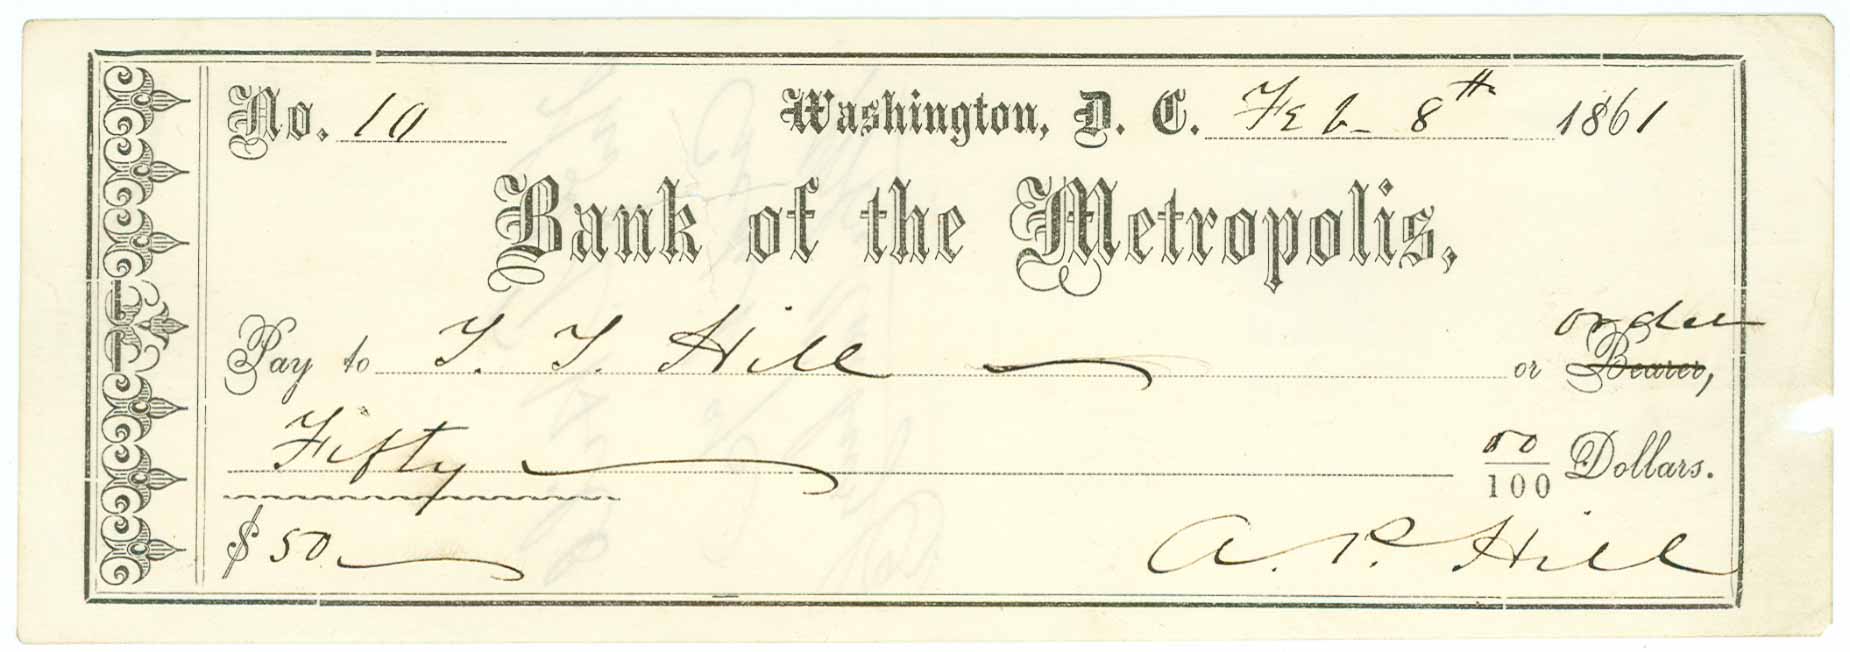 No. 10 Washington, D. C. Feb 8th 1861
Bank of the Metropolis,
order
Pay to T. T. Hill or Bearer,
Fifty 00/100 Dollars.
$ 50 A. P. Hill